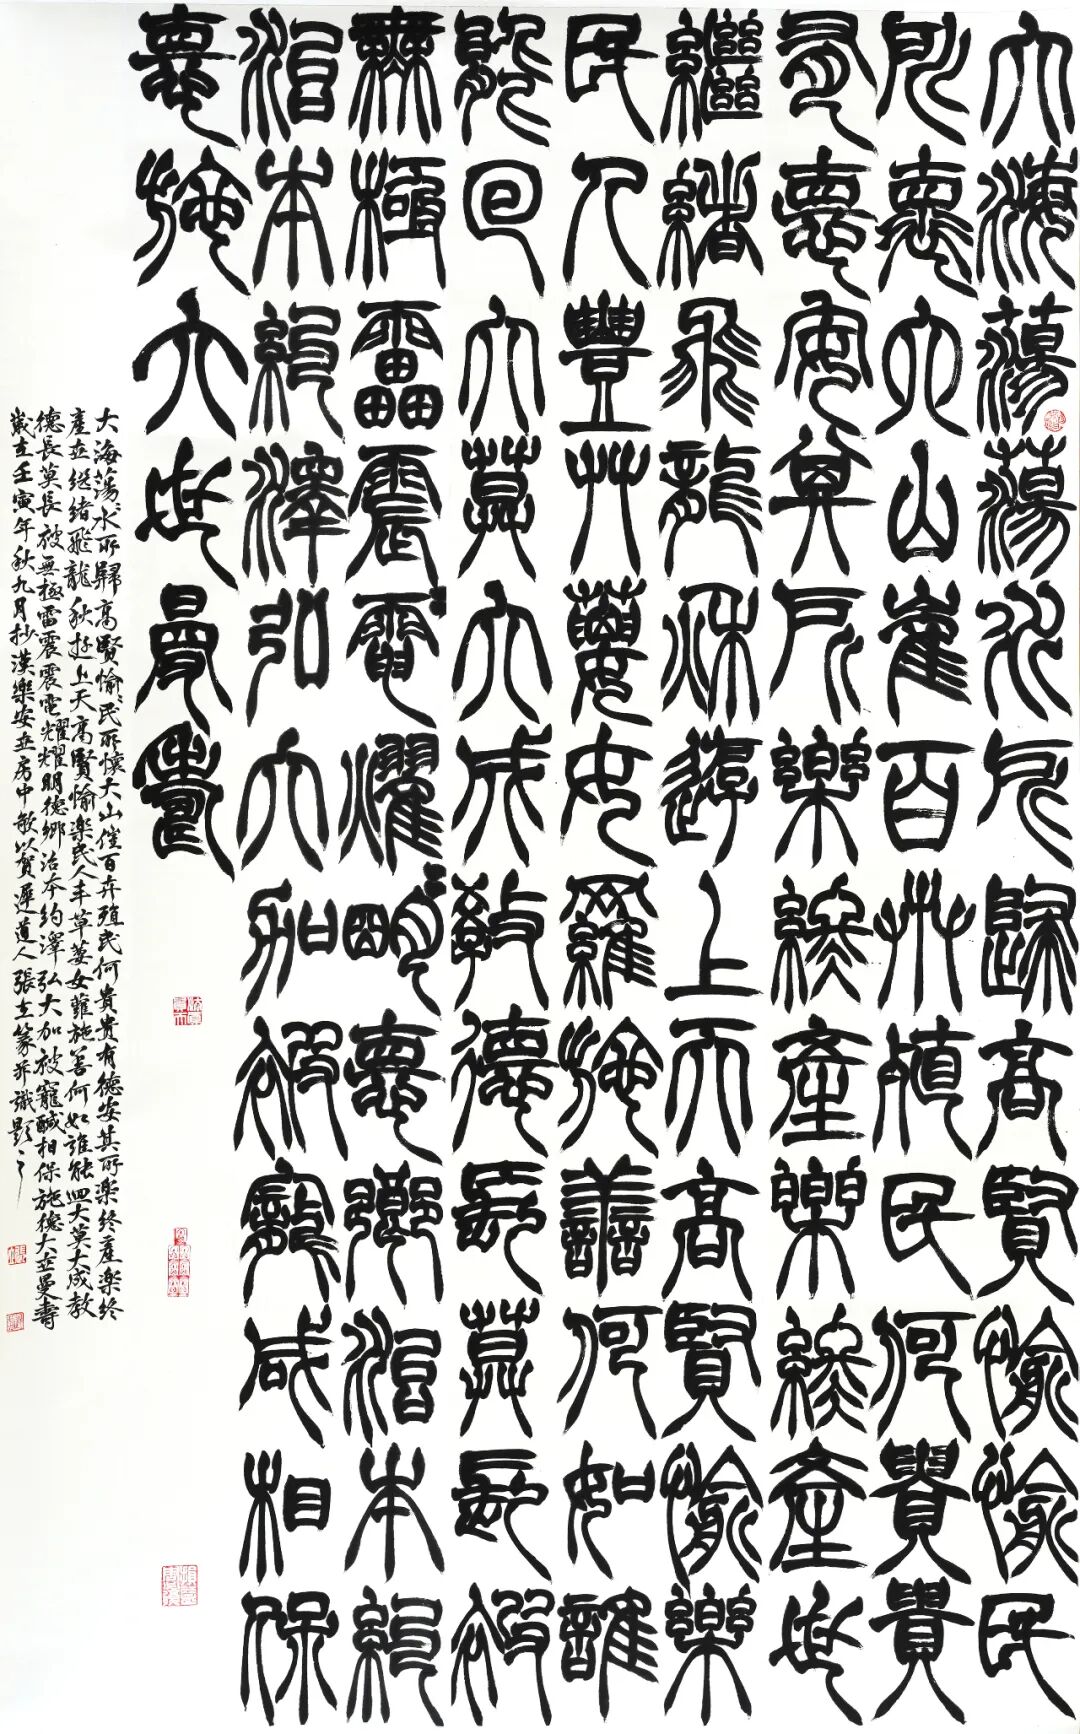 大海蕩蕩水所歸高賢愉愉民
所懷大山崔百卉殖民何貴貴
有德安其所樂終產樂終產世
繼緒飛龍秋游上天高賢愉樂
民人豐草葽女蘿施善何如誰
能回大莫大成教德長莫長被
無極雷震電燿明德鄉治本約
治本約澤弘大加被寵咸相保
德施大世曼壽
大海蕩〻水所歸高賢愉〻民所懷大山崔百卉殖民何貴貴有德安其所樂終產樂終
產世繼緒飛龍秋游上天高賢愉樂民人丰草葽女蘿施善何如誰能回大莫大成教
德長莫長被無極雷震震電耀耀明德鄉治本約澤弘大加被寵咸相保施德大世曼壽
歲在壬寅年秋九月抄漢樂安世房中歌以賀遲道人張立篆并識